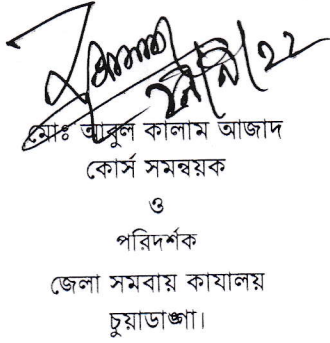 মোঃ আবুল কালাম আজাদ
কোর্স সমন্বয়ক
ও
পরিদর্শক
জেলা সমবায় কাযালয়
চুয়াডাঙ্গা।